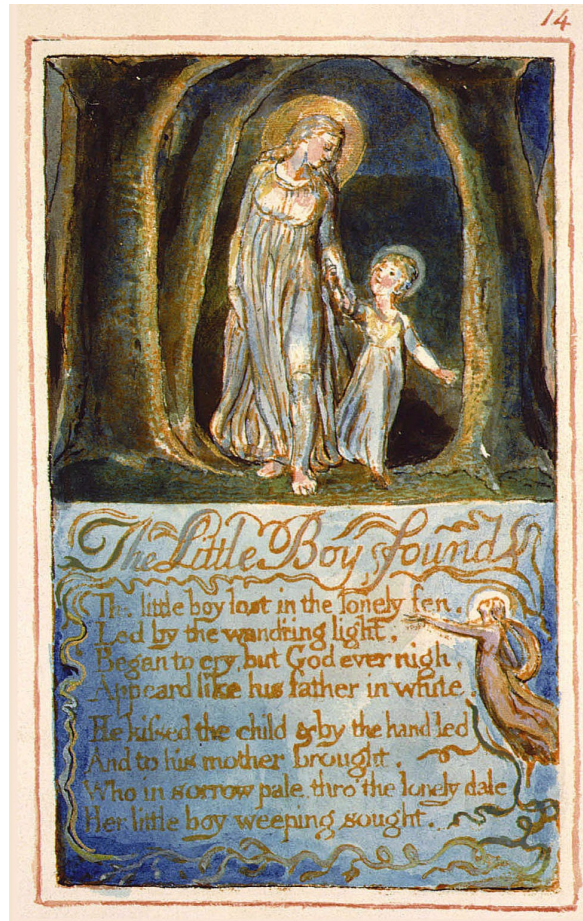 14
The Little Boy found
The little boy lost in the lonely fen,
Led by the wandring light,
Began to cry, but God ever nigh,
Appeard like his father in white.
He kissed the child & by the hand led
And to his mother brought,
Who in sorrow pale, thro' the lonely dale
Her little boy weeping sought.